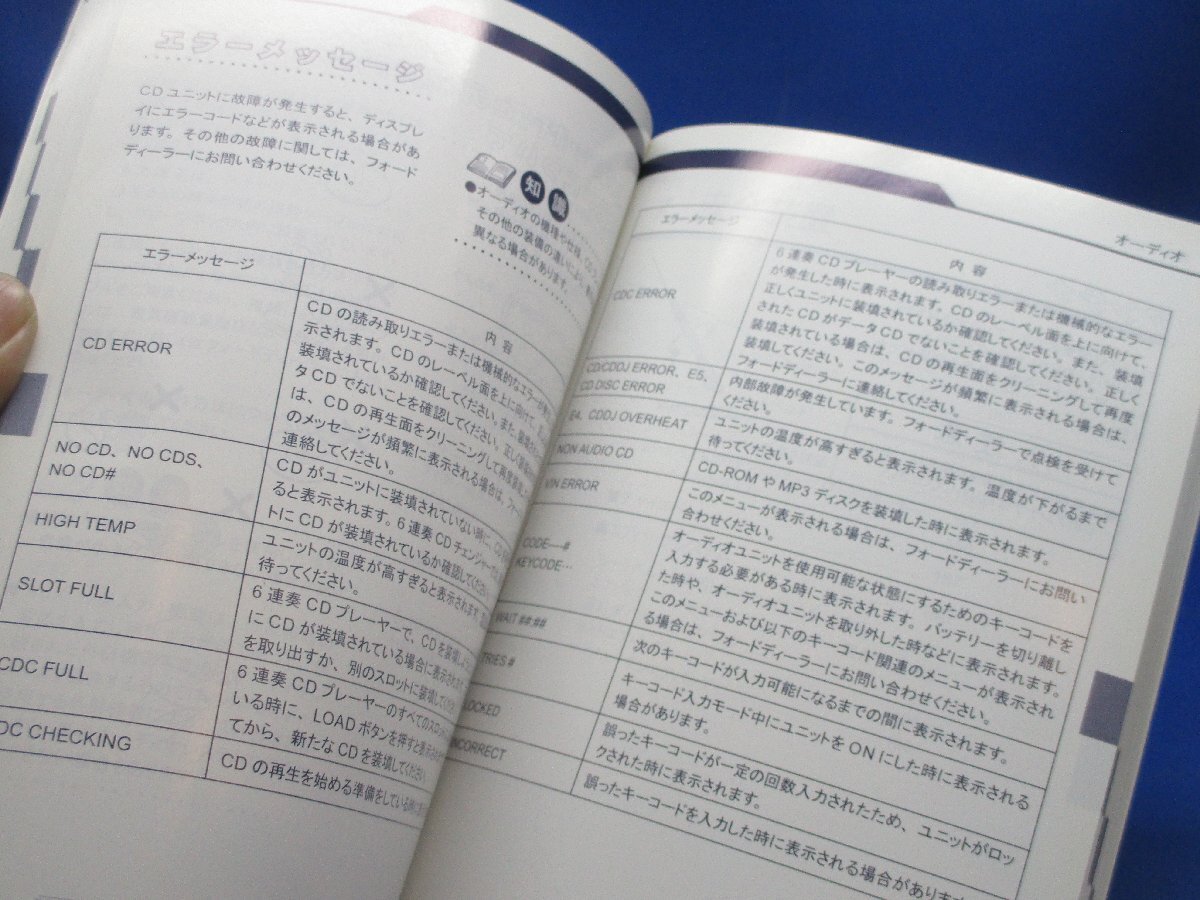 エラーメッセージ
CD ユニットに故障が発生すると、ディスプレ
イにエラーコードなどが表示される場合があ
ります。その他の故障に関しては、フォード
ディーラーにお問い合わせください。
知識
●オーディオの機種や仕様、
その他の装備の違いにより、
異なる場合があります。
エラーメッセージ
内 容
CD ERROR
CD の読み取りエラーまたは機械的なエラーが
示されます。CD のレーベル面を上に向け
装填されているか確認してください。また、装填
タ CD でないことを確認してください。正しく
は、CD の再生面をクリーニングして再度装填
のメッセージが頻繁に表示される場合は、フォード
連絡してください。
NO CD、NO CDS、
NO CD#
CD がユニットに装填されていない時に
ると表示されます。6 連奏 CD チェンジャー
トに CD が装填されているか確認してください。
HIGH TEMP
ユニットの温度が高すぎると表示されます。
待ってください。
SLOT FULL
6 連奏 CD プレーヤーで、CD を装填
に CD が装填されている場合に表示されます
を取り出すか、別のスロットに装填してください
CDC FULL
6 連奏 CD プレーヤーのすべてのスロット
いる時に、LOAD ボタンを押すと表示され
てから、新たな CD を装填してください。
DC CHECKING
CD の再生を始める準備をしている時に
オーディオ
エラーメッセージ
内 容
CDC ERROR
6 連奏 CD プレーヤーの読み取りエラーまたは機械的なエラー
が発生した時に表示されます。CD のレーベル面を上に向けて、
正しくユニットに装填されているか確認してください。また、装填
された CD がデータ CD でないことを確認してください。正しく
装填されている場合は、CD の再生面をクリーニングして再度
装填してください。このメッセージが頻繁に表示される場合は、
フォードディーラーに連絡してください。
CD/CDDJ ERROR、E5、
CD DISC ERROR
内部故障が発生しています。フォードディーラーで点検を受けて
ください。
E4、CDDJ OVERHEAT
ユニットの温度が高すぎると表示されます。温度が下がるまで
待ってください。
NON AUDIO CD
CD-ROM や MP3 ディスクを装填した時に表示されます。
VIN ERROR
このメニューが表示される場合は、フォードディーラーにお問い
合わせください。
CODE----#
KEYCODE…
オーディオユニットを使用可能な状態にするためのキーコードを
入力する必要がある時に表示されます。バッテリーを切り離し
た時や、オーディオユニットを取り外した時などに表示されます。
このメニューおよび以下のキーコード関連のメニューが表示され
る場合は、フォードディーラーにお問い合わせください。
WAIT ##:##
次のキーコードが入力可能になるまでの間に表示されます。
TRIES #
キーコード入力モード中にユニットを ON にした時に表示される
場合があります。
LOCKED
誤ったキーコードが一定の回数入力されたため、ユニットがロッ
クされた時に表示されます。
INCORRECT
誤ったキーコードを入力した時に表示される場合があります